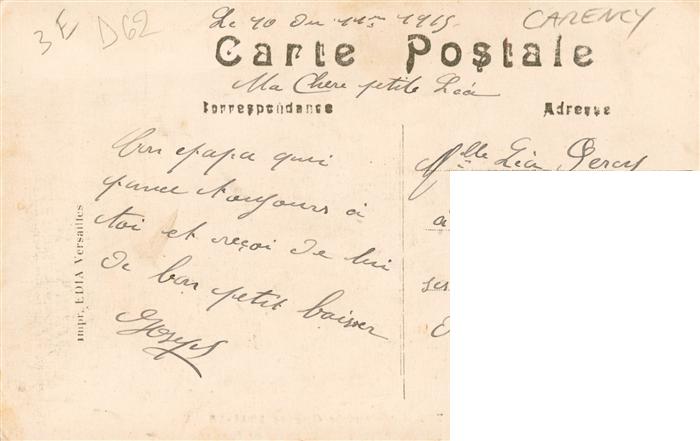 3E D62
Le 10 Du 11s 1915
CARENCY
Carte Postale
Ma Chere petite Léa
Correspondance
Adresse
bon papa qui
pance toujours a
toi et reçoi de lui
de bon petit baiser
Joseph
Mlle Léa
à
ses
Impr. EDIA Versailles